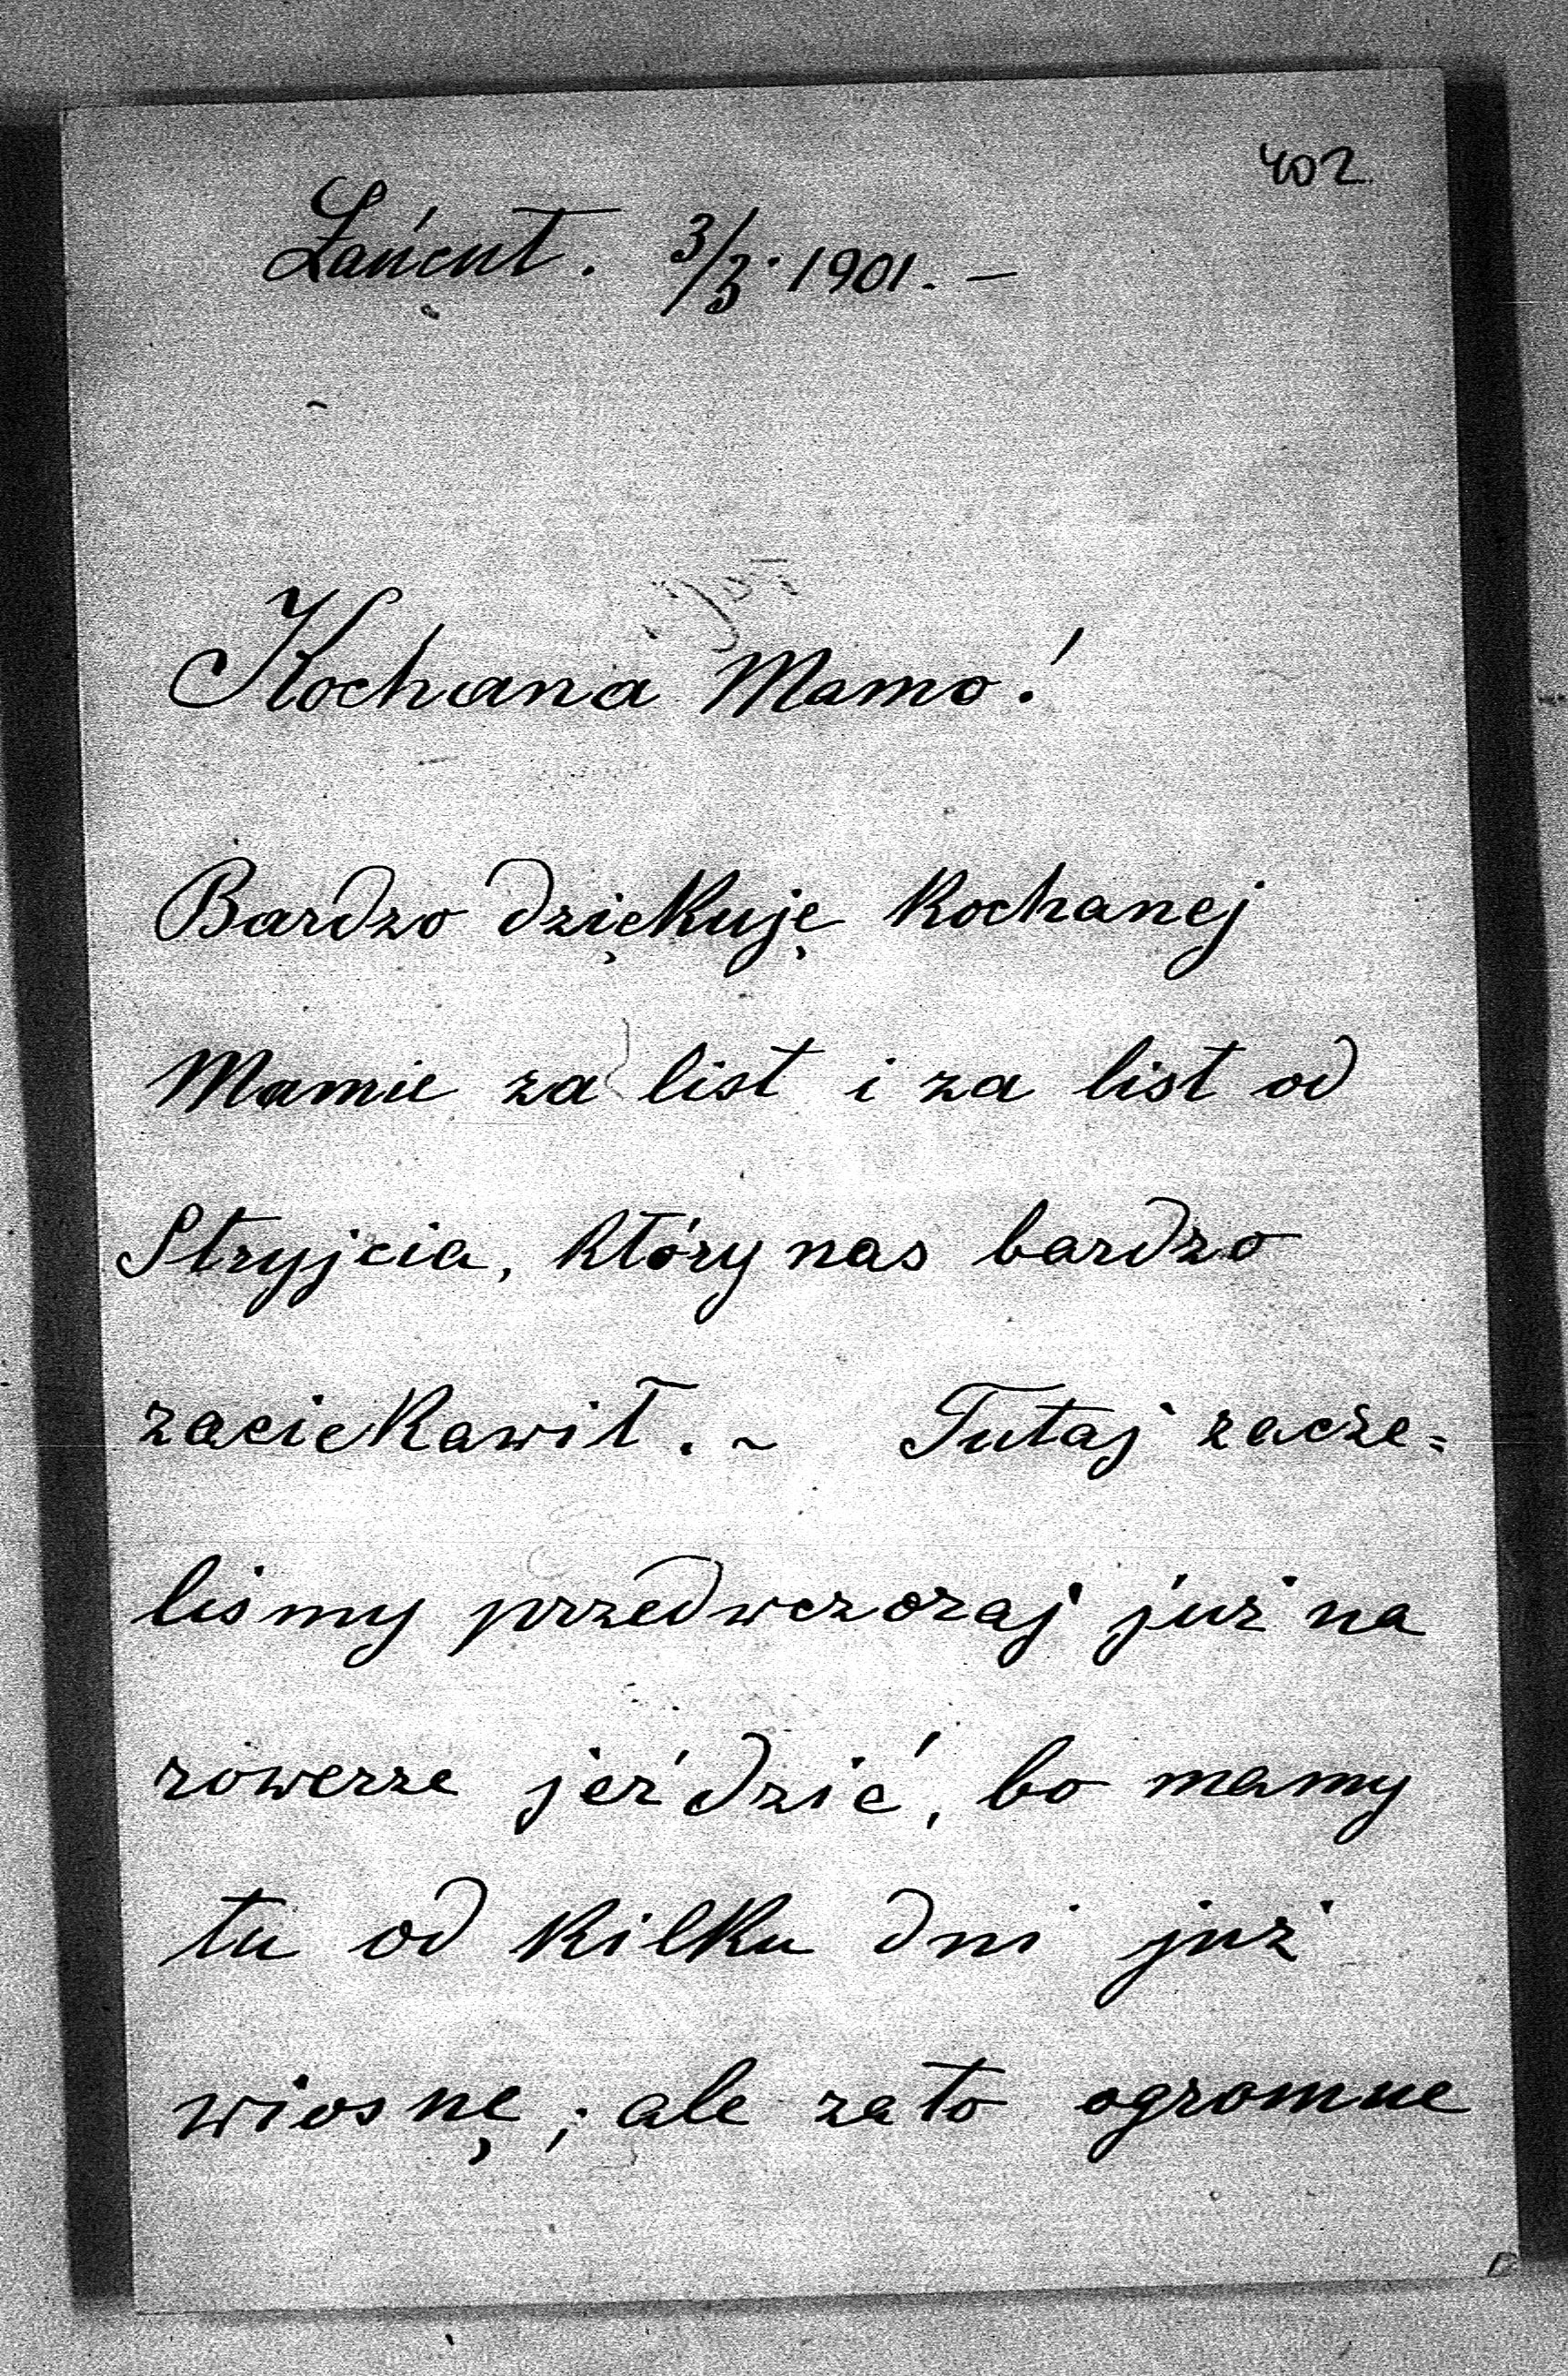 402
Łańcut. 3/3. 1901. –
Kochana Mamo!
Bardzo dziękuję kochanej
Mamie za list i za list od
Stryjcia, który nas bardzo
zaciekawił. ~ Tutaj zacze=
liśmy przedwczoraj już na
rowerze jeździć, bo mamy
tu od kilku dni już
wiosnę; ale za to ogromne